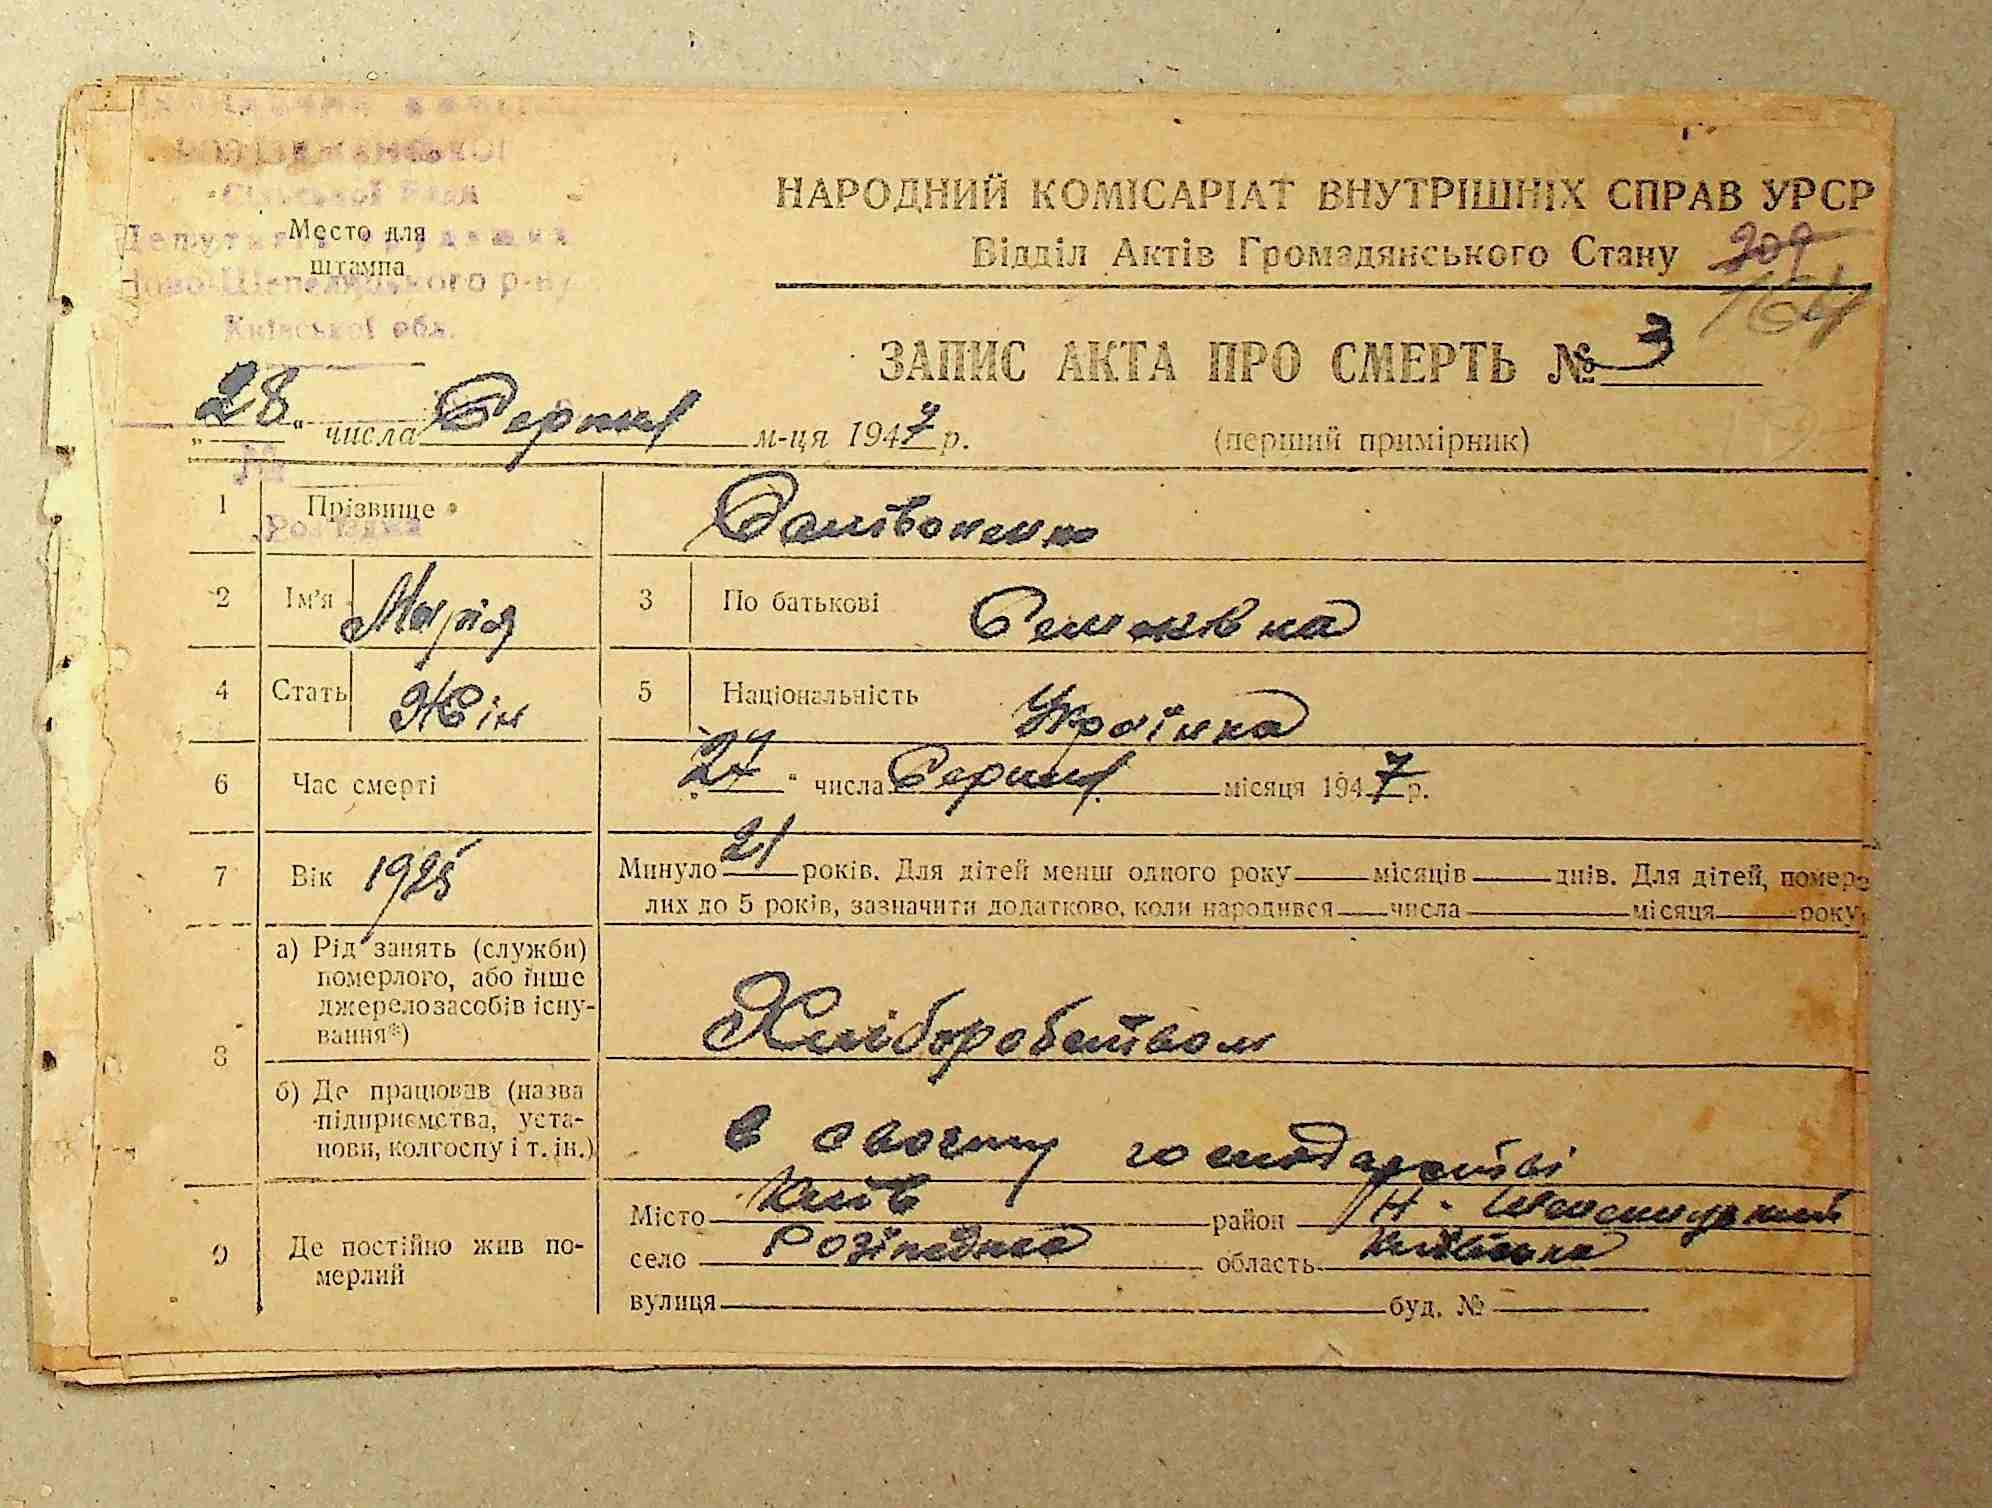 Сільської Ради
Депутатів трудящих
Ново-Шепелицького р-ну
Київської обл.
Место для
штампа
НАРОДНИЙ КОМІСАРІАТ ВНУТРІШНІХ СПРАВ УРСР
Відділ Актів Громадянського Стану 209
ЗАПИС АКТА ПРО СМЕРТЬ № 3
„28“ числа Серпня м-ця 1947 р.
(перший примірник)
№
Роз'їджа
1 Прізвище Залівоненко
2 Ім'я Марія 3 По батькові Семенівна
4 Стать Жін 5 Національність Українка
6 Час смерті „27“ числа Серпня місяця 1947 р.
7 Вік 1925 Минуло 21 років. Для дітей менш одного року місяців днів. Для дітей, помер-
лих до 5 років, зазначити додатково, коли народився числа місяця року
8 а) Рід занять (служби)
померлого, або інше
джерело засобів існу-
вання*)
Хліборобством
б) Де працював (назва
підприємства, уста-
нови, колгоспу і т. ін.)
в своєму господарстві
9 Де постійно жив по-
мерлий
Місто Київ район Н-Шепелицький
село Розїждже область Київська
вулиця буд. №